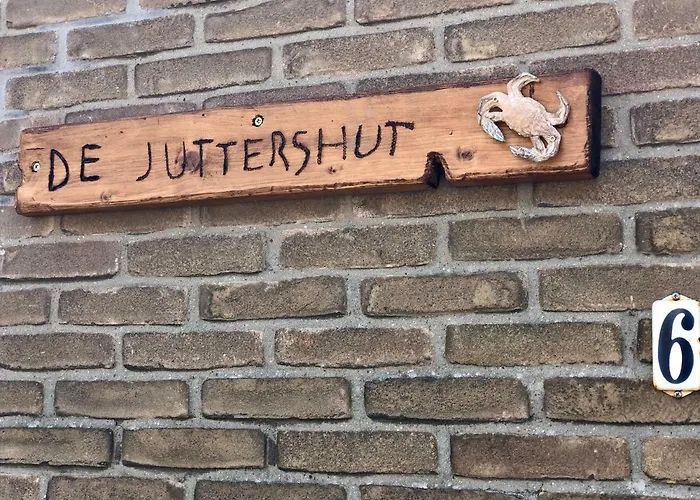 DE JUTTERSHUT
6